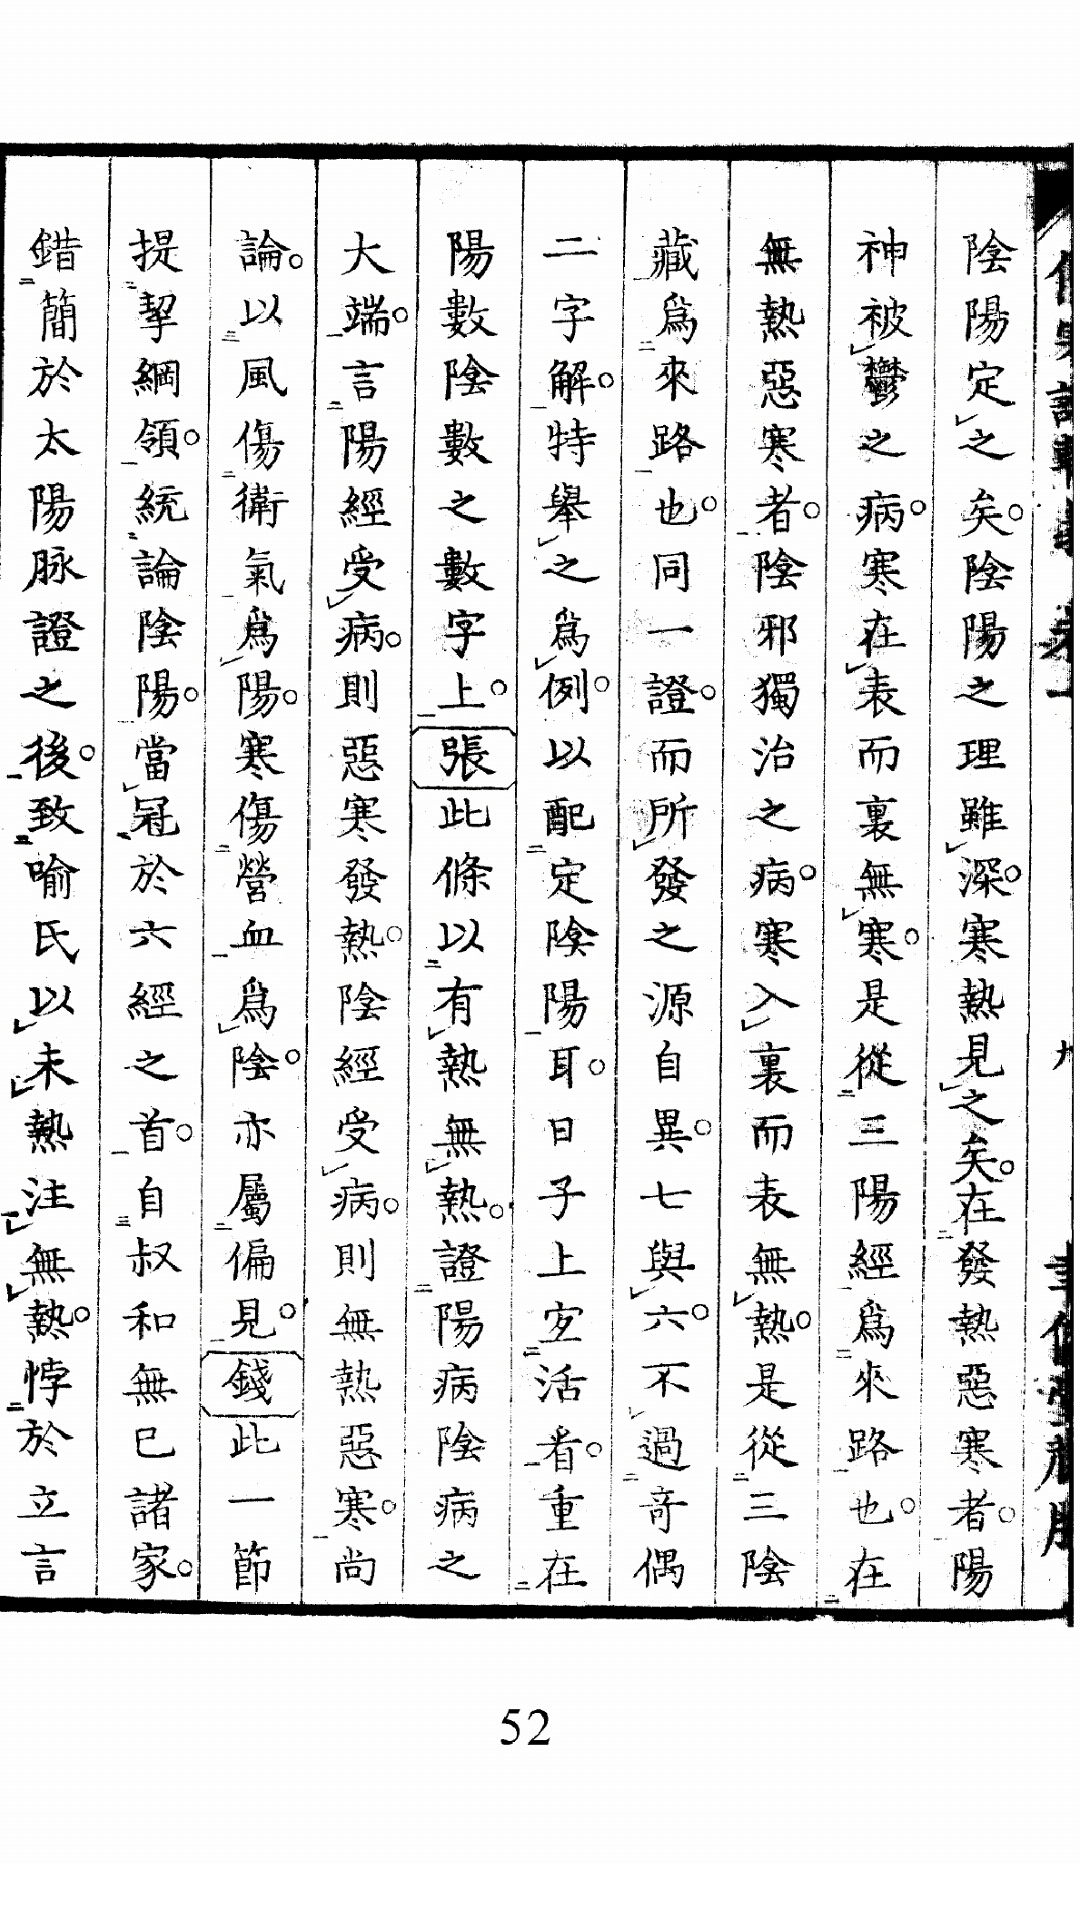 陰陽定之矣。陰陽之理雖深。寒熱見之矣。在發熱惡寒者。陽
神被鬱之病。寒在表而裏無寒。是從三陽經爲來路也。在
無熱惡寒者。陰邪獨治之病。寒入裏而表無熱。是從三陰
藏爲來路也。同一證。而所發之源自異。七與六。不過奇偶
二字解。特舉之爲例。以配定陰陽耳。日子上宜活看。重在
陽數陰數之數字上。張此條以有熱無熱。證陽病陰病之
大端。言陽經受病。則惡寒發熱。陰經受病。則無熱惡寒。尚
論。以風傷衛氣爲陽。寒傷營血爲陰。亦屬偏見。錢此一節
提挈綱領。統論陰陽。當冠於六經之首。自叔和無已諸家。
錯簡於太陽脉證之後。致喻氏以未熱注無熱。悖於立言
52